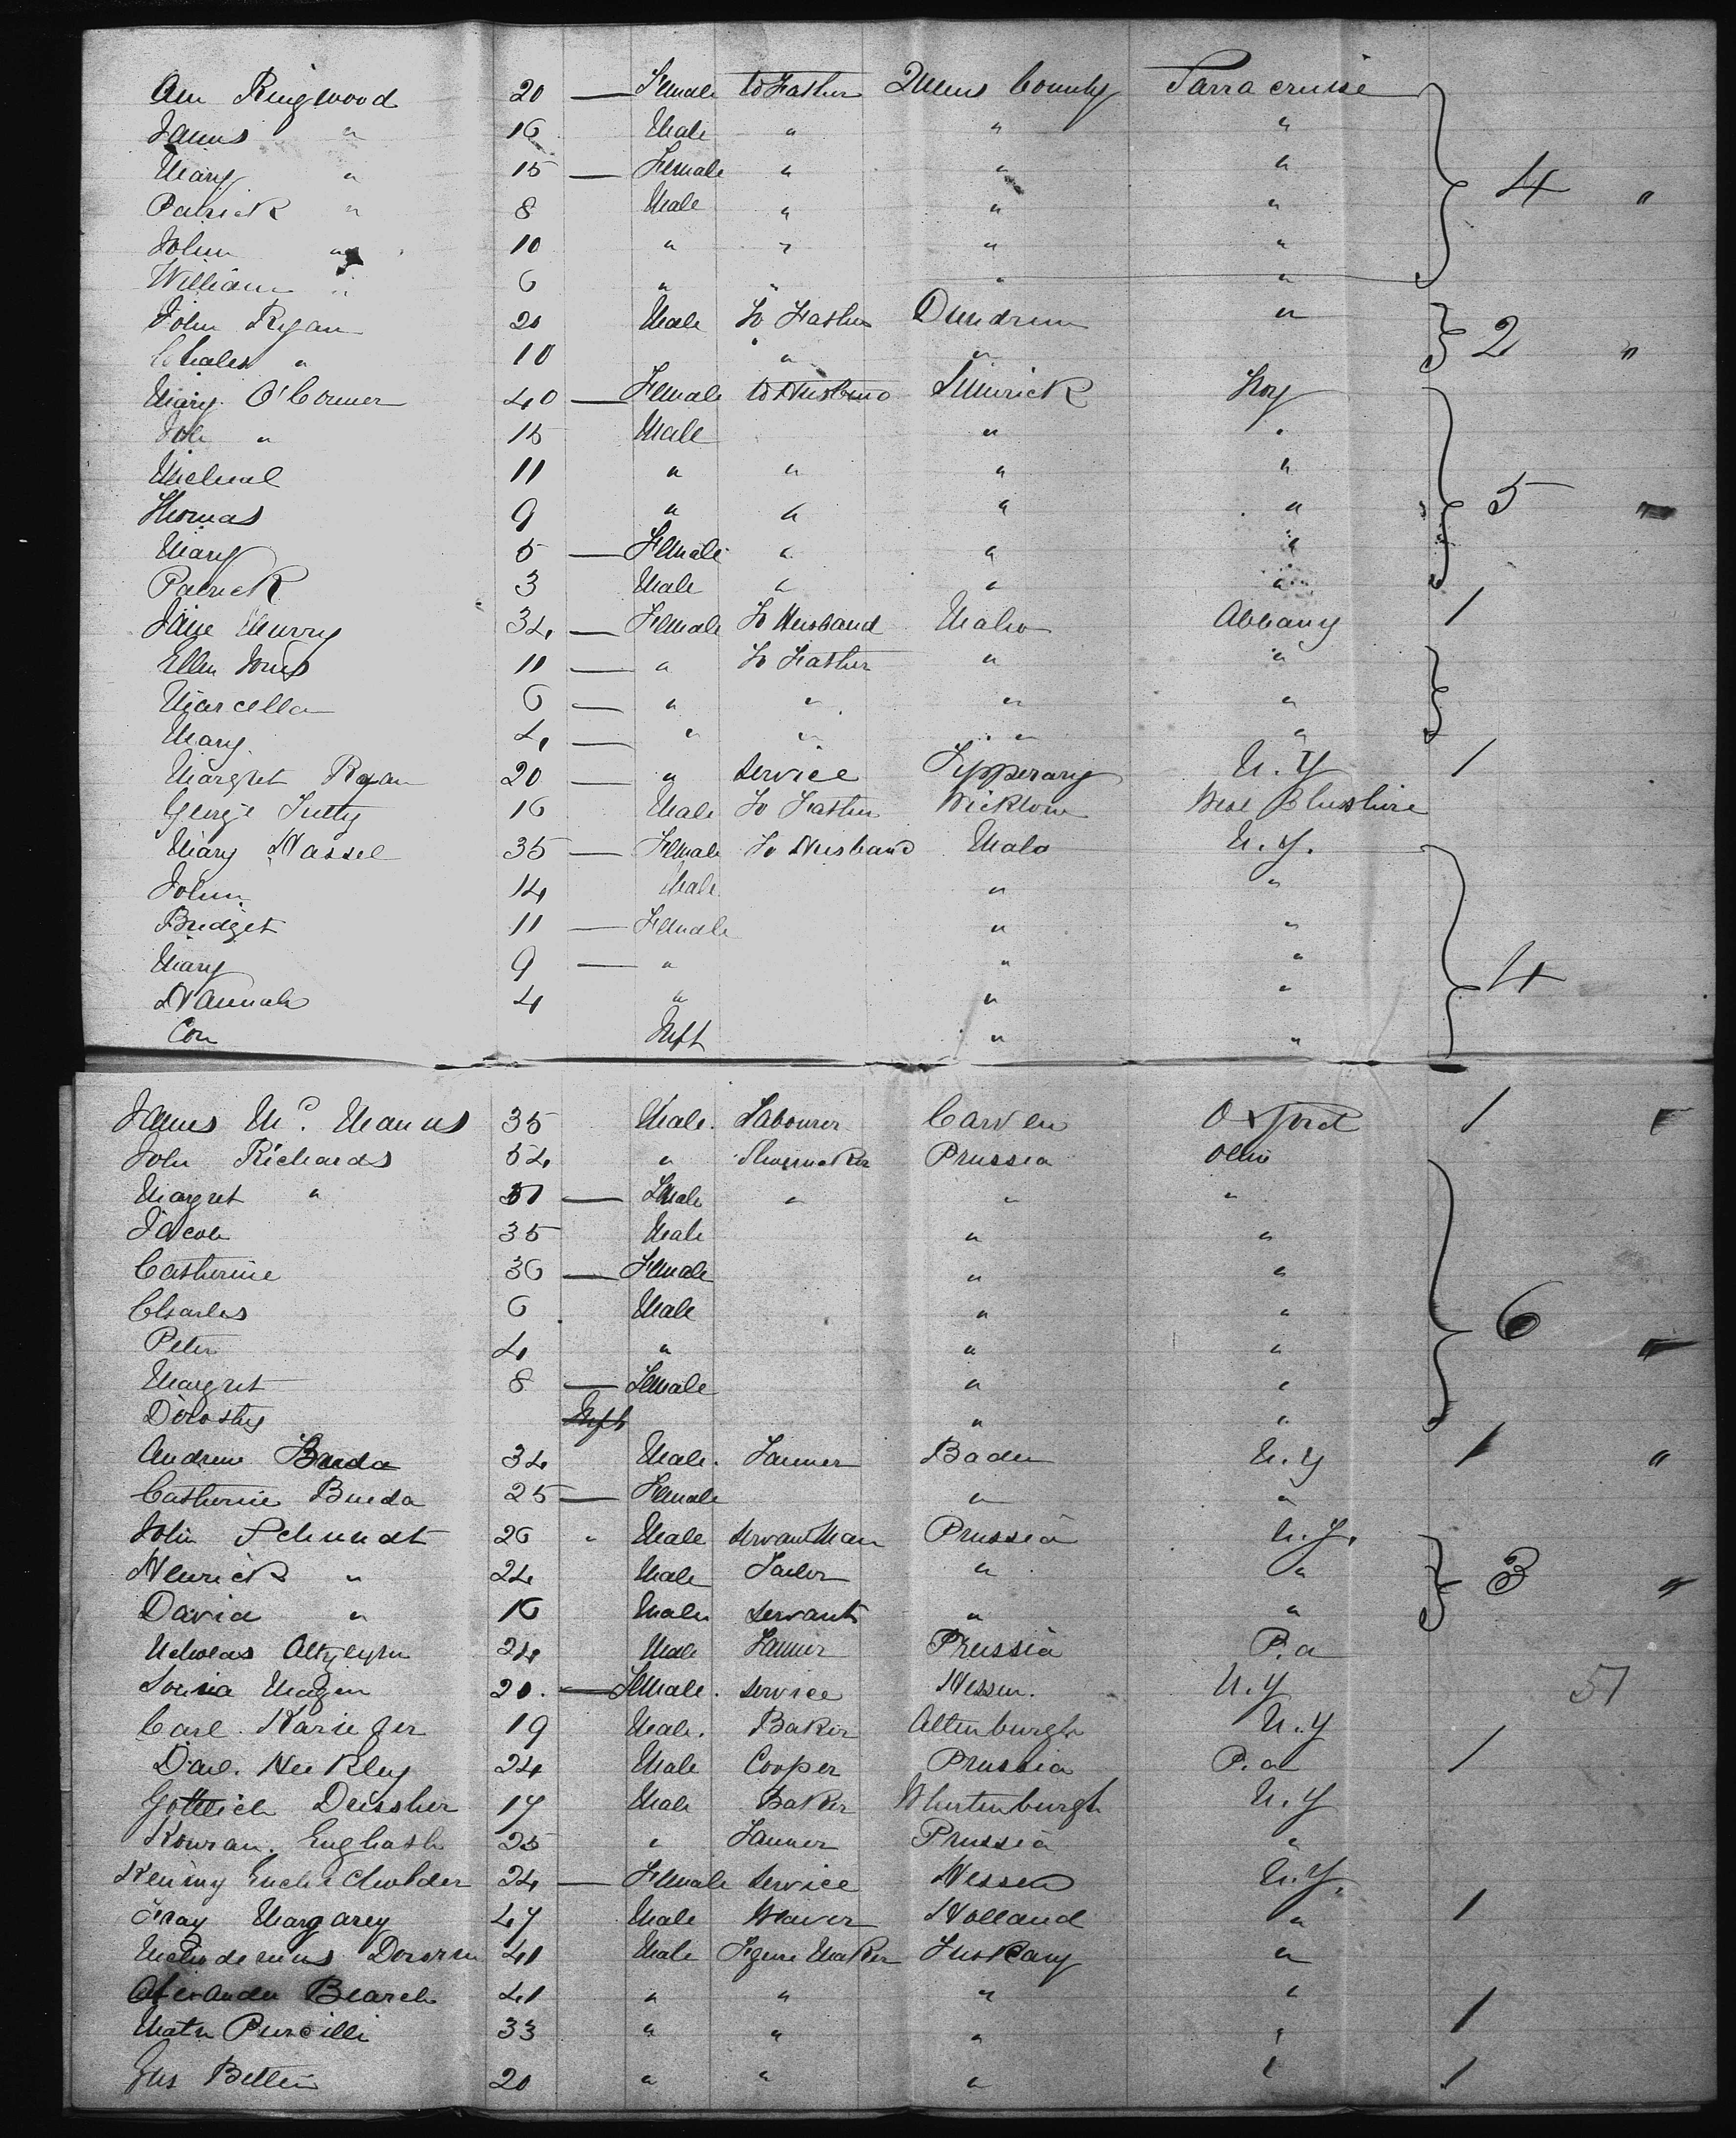 Ann Ringwood 20 — Female to Father Queens County Sarra cruise
James " 16 Male " " "
Mary " 15 — Female " " " 4 "
Patrick " 8 Male " " "
John " 10 " " " "
William " 6 " " " "
John Ryan 20 Male To Father Dundrum " 2 "
Charles " 10 " "
Mary O'Conner 40 — Female to Husband Limrick Troy
Joh " 15 Male " "
Micheal 11 " " " "
Thomas 9 " " " " 5 "
Mary 5 — Female " " "
Patrick 3 Male " " "
Jane Murry 34 — Female To Husband Malo Albany 1
Ellen 11 — " To Father " "
Marcella 6 — " " " "
Mary 4 — " " " "
Margret Ryan 20 — " Service Tipperary N.Y 1
George Tutty 16 Male To Father Wicklow
Mary Hassel 35 — Female To Husband Malo N.Y.
John 14 Male " "
Bridget 11 — Female " "
Mary 9 — " " "
Hannah 4 " " " 4
Con Inft " "
James Mc. Manus 35 Male. Labourer Carven Oxford 1 "
John Richards 54 " Shoemaker Prussia Ohio
Margret " 51 — Female " " "
Jacob 35 Male " "
Catherine 36 — Female " "
Charles 6 Male " " 6
Peter 4 " " " "
Margret 8 — Female " "
Dorothy Inft " "
Andrew Burda 34 Male. Farmer Baden N.Y 1 "
Catherine Burda 25 — Female " "
John Schmidt 26 " Male Servant Man Prussia N.Y.
Henrick " 24 Male Tailor " " 3 "
David " 16 Male Servant " "
Nicholas 24 Male Farmer Prussia P.a
Louisa Magen 20. — Female. Service Hessen. N.Y 51
Carl Karieger 19 Male. Baker Altenburgh N.Y
Dael. Heckley 24 Male Cooper Prussia P.a 1
Gottleich Dussher 17 Male Baker Whurtenburgh N.Y
Konran. Englhath 25 " Farmer Prussia "
24 — Female Service Hessen N.Y.
Fray Margarey 47 Male Weaver Holland " 1
41 Male Figure Maker Tuskany "
Alexander Bearch 41 " " " " 1
Matu Purcilli 33 " " " "
Gus Bellein 20 " " " " 1